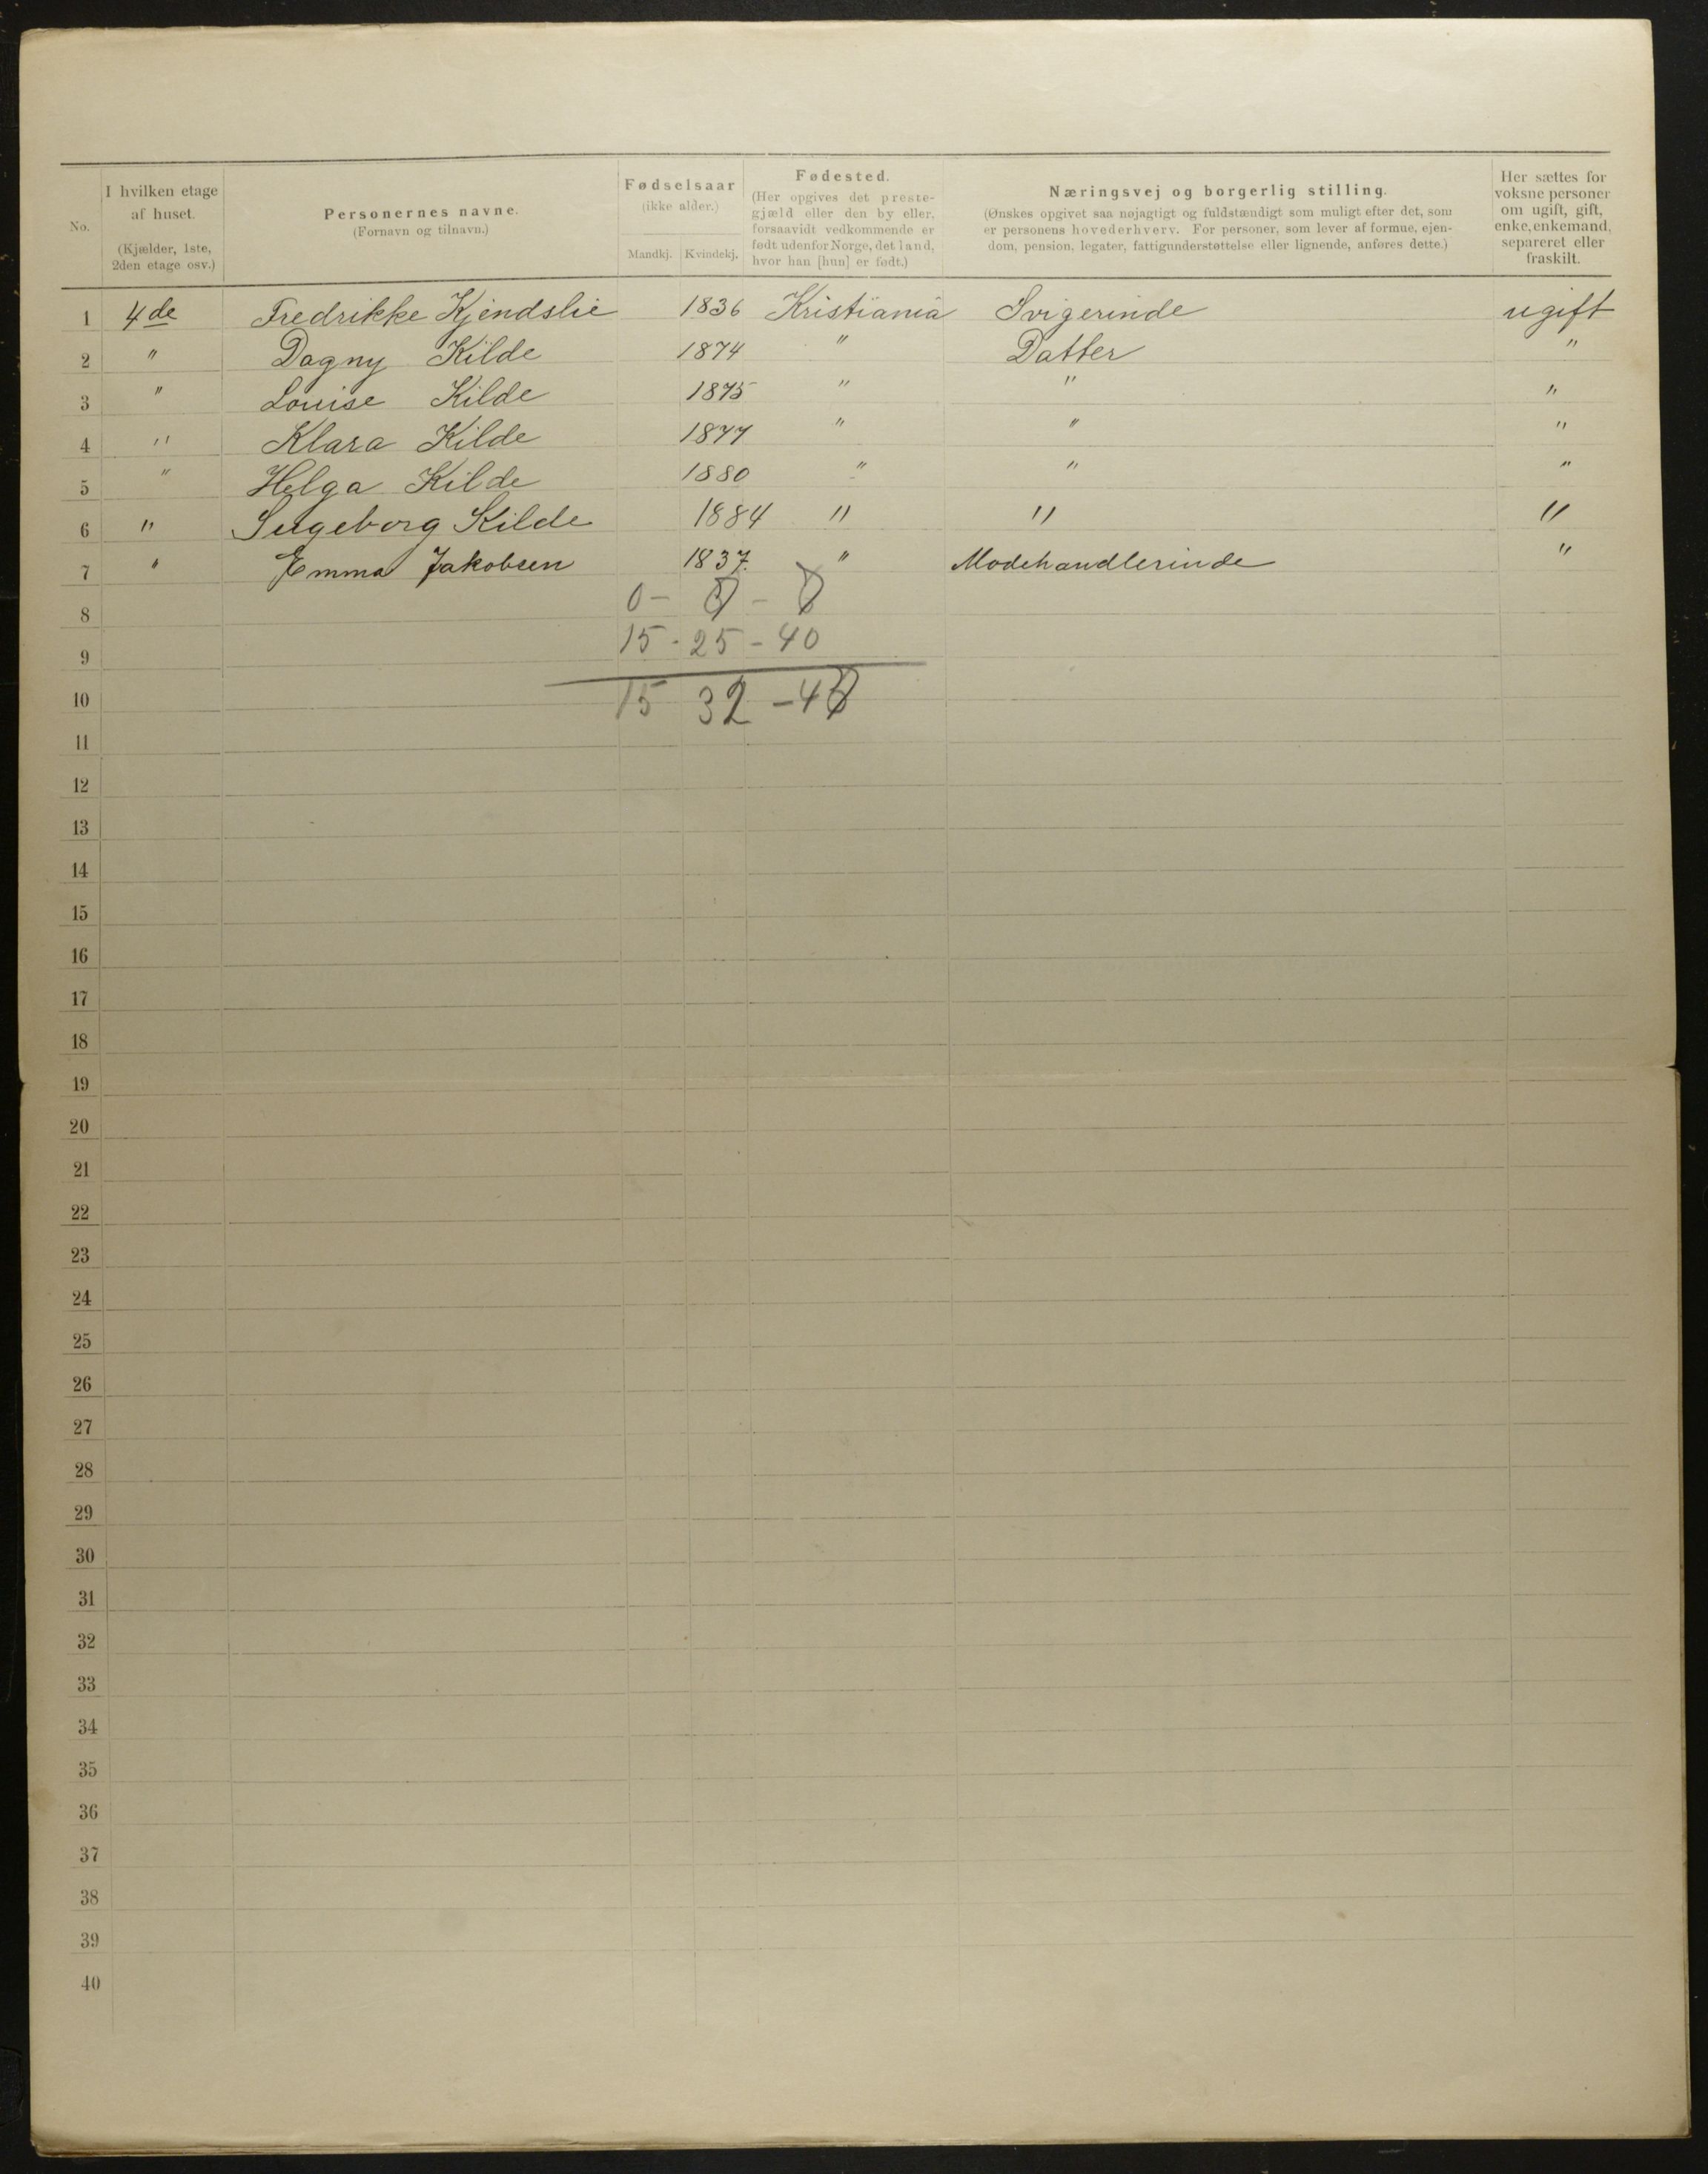 No.	I hvilken etage af huset. (Kjælder, 1ste, 2den etage osv.)	Personernes navne. (Fornavn og tilnavn.)	Fødselsaar (ikke alder.) Mandkj. Kvindekj.	Fødested. (Her opgives det prestegjæld eller den by eller, forsaavidt vedkommende er født udenfor Norge, det land, hvor han [hun] er født.)	Næringsvej og borgerlig stilling. (Ønskes opgivet saa nøjagtigt og fuldstændigt som muligt efter det, som er personens hovederhverv. For personer, som lever af formue, ejendom, pension, legater, fattigunderstøttelse eller lignende, anføres dette.)	Her sættes for voksne personer om ugift, gift, enke, enkemand, separeret eller fraskilt.
1 4de Fredrikke Kjendslie 1836 Kristiania Svigerinde ugift
2 " Dagny Kilde 1874 " Datter "
3 " Louise Kilde 1875 " " "
4 " Klara Kilde 1877 " " "
5 " Helga Kilde 1880 " " "
6 " Ingeborg Kilde 1884 " " "
7 " Emma Jakobsen 1837. " Modehandlerinde "
8 0 - 7 - 7
9 15 - 25 - 40
10 15 32 - 47
11
12
13
14
15
16
17
18
19
20
21
22
23
24
25
26
27
28
29
30
31
32
33
34
35
36
37
38
39
40